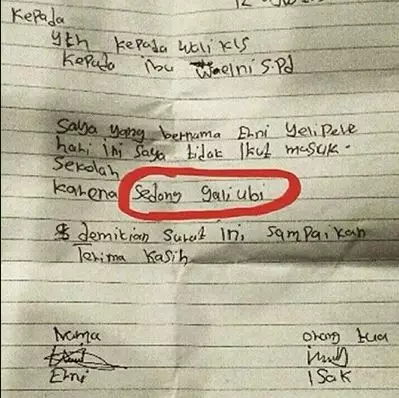 Kepada
yth kepada wali kls
kepada ibu Waelni S.Pd
Saya yang bernama Erni Yelipele
hari ini saya tidak ikut masuk.
Sekolah
karena Sedang gali ubi
demikian Surat ini, sampaikan
Terima kasih
Nama
orang tua
Erni
ISak